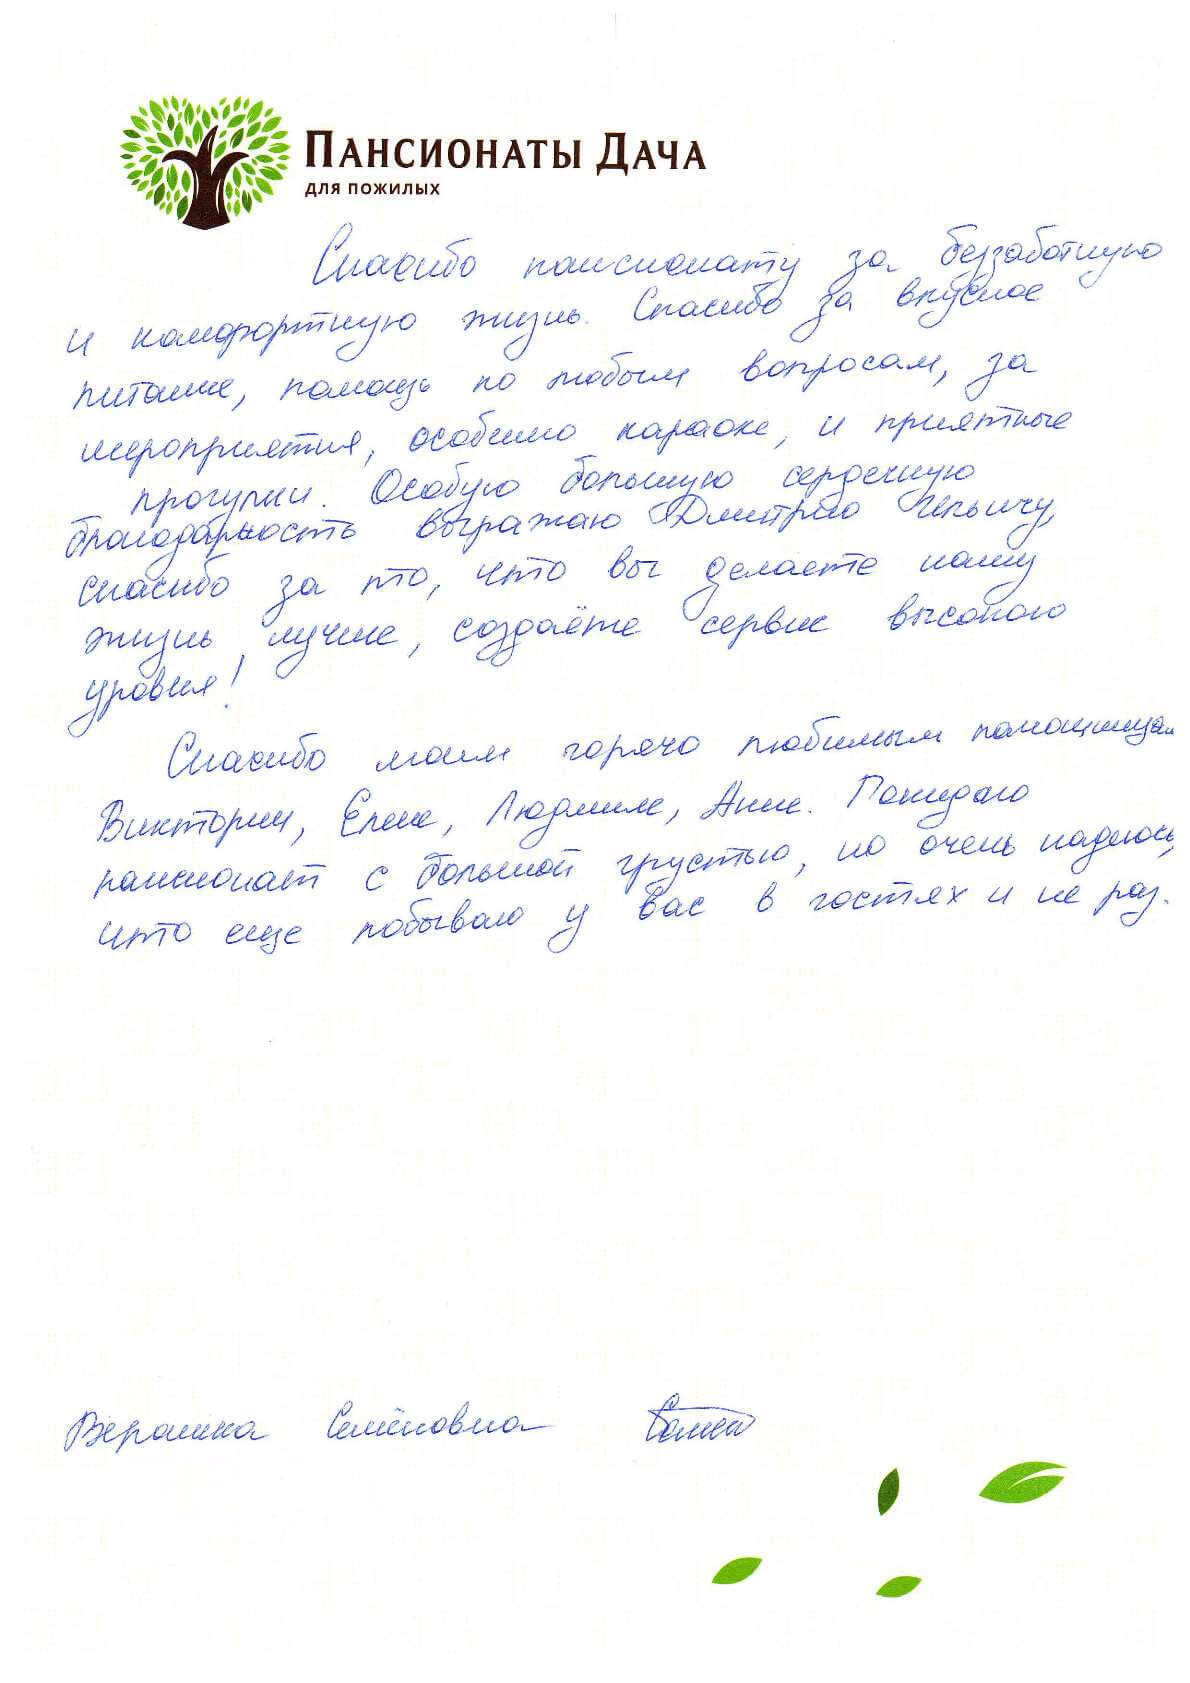 Пансионаты Дача
для пожилых
Спасибо пансионату за беззаботную
и комфортную жизнь. Спасибо за вкусное
питание, помощь по любым вопросам, за
мероприятия, особенно караоке, и приятные
прогулки. Особую большую сердечную
благодарность выражаю Дмитрию Ильичу,
спасибо за то, что вы делаете нашу
жизнь лучше, создаёте сервис высокого
уровня!
Спасибо моим горячо любимым помощницам
Виктории, Елене, Людмиле, Анне. Покидаю
пансионат с большой грустью, но очень надеюсь,
что еще побываю у вас в гостях и не раз.
Вероника Семёновна